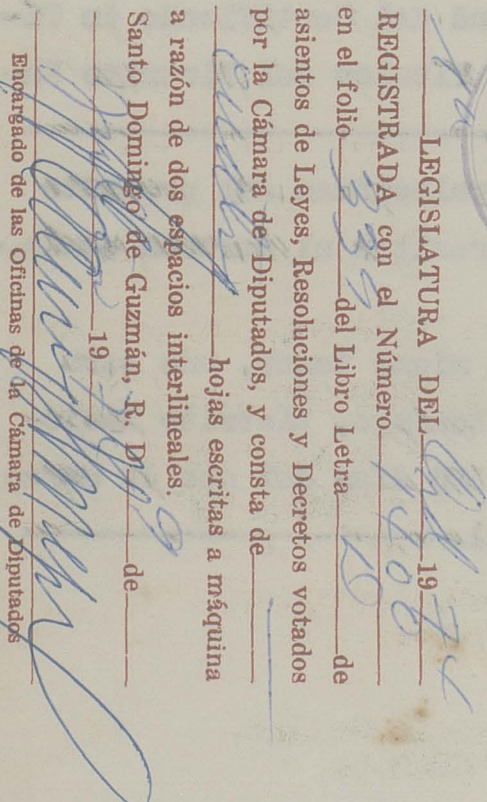 1a LEGISLATURA DEL Ord 19
REGISTRADA con el Número
en el folio 339 del Libro Letra D de
asientos de Leyes, Resoluciones y Decretos votados
por la Cámara de Diputados, y consta de
hojas escritas a máquina
a razón de dos espacios interlineales.
Santo Domingo de Guzmán, R. D. de
19
Encargado de las Oficinas de la Cámara de Diputados